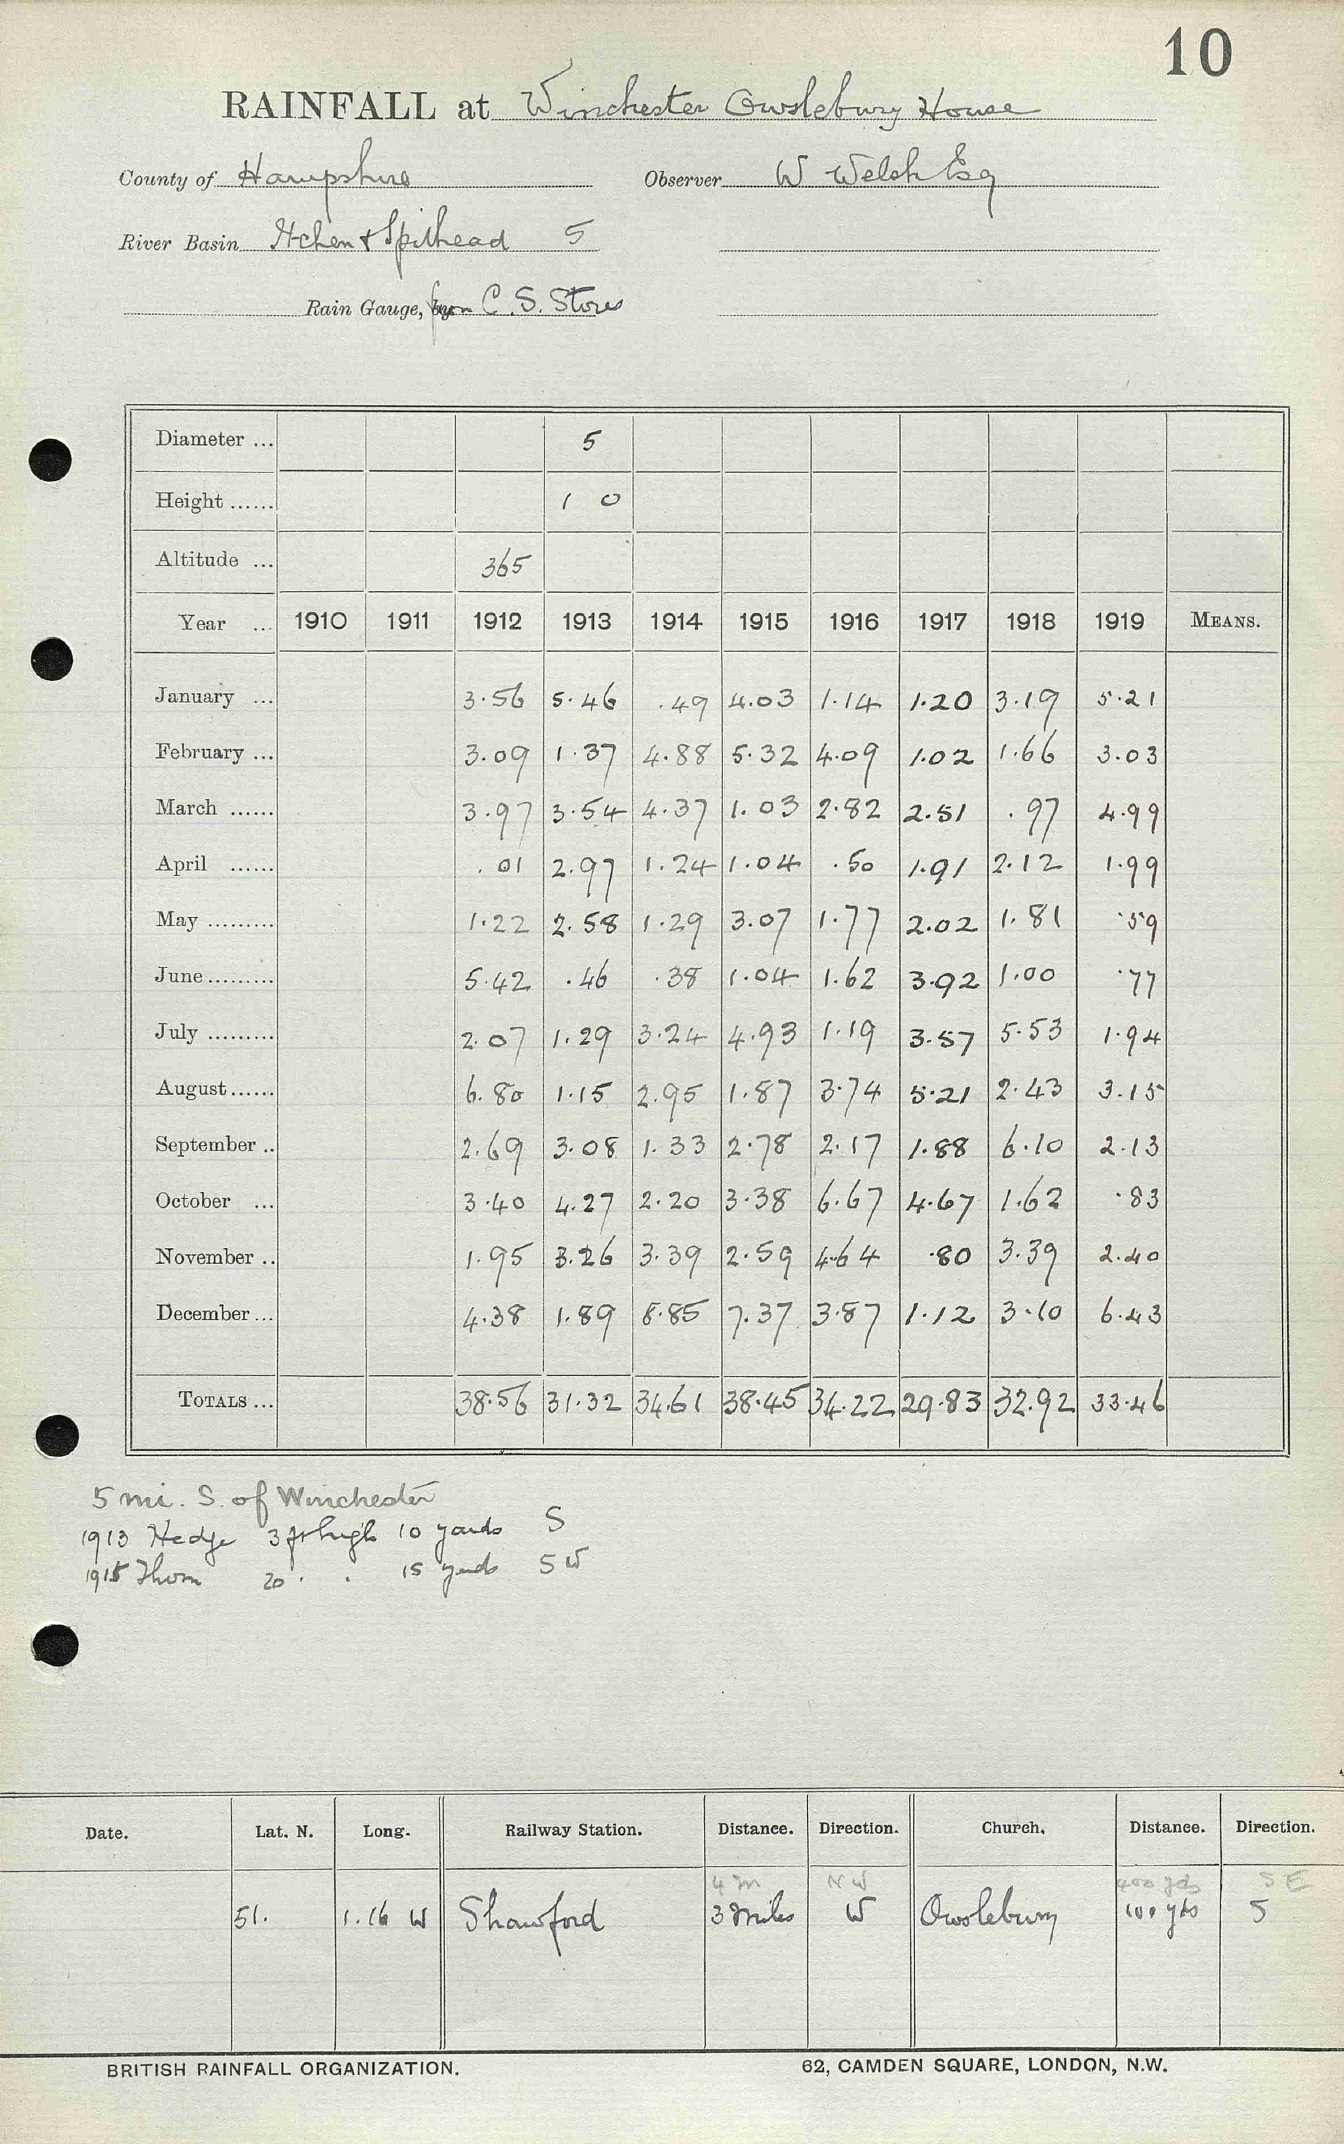 10
RAINFALL at Winchester Owslebury House
County of Hampshire Observer W Welsh Esq
River Basin Itchen & Spithead 5
Rain Gauge, from C. S. Stores
Diameter ... 5
Height ...... 1 0
Altitude ... 365
Year ... 1910 1911 1912 1913 1914 1915 1916 1917 1918 1919 MEANS.
January ... 3.56 5.46 .49 4.03 1.14 1.20 3.19 5.21
February ... 3.09 1.37 4.88 5.32 4.09 1.02 1.66 3.03
March ...... 3.97 3.54 4.37 1.03 2.82 2.51 .97 4.99
April ...... .01 2.97 1.24 1.04 .50 1.91 2.12 1.99
May ......... 1.22 2.58 1.29 3.07 1.77 2.02 1.81 .59
June ......... 5.42 .46 .38 1.04 1.62 3.92 1.00 .77
July ......... 2.07 1.29 3.24 4.93 1.19 3.57 5.53 1.94
August ...... 6.80 1.15 2.95 1.87 3.74 5.21 2.43 3.15
September .. 2.69 3.08 1.33 2.78 2.17 1.88 6.10 2.13
October ... 3.40 4.27 2.20 3.38 6.67 4.67 1.62 .83
November .. 1.95 3.26 3.39 2.59 4.64 .80 3.39 2.40
December ... 4.38 1.89 8.85 7.37 3.87 1.12 3.10 6.43
TOTALS ... 38.56 31.32 34.61 38.45 34.22 29.83 32.92 33.46
5 mi. S. of Winchester
1913 Hedge 3 ft high 10 yards S
1915 Thorn 20 . . 15 yards SW
Date. Lat. N. Long. Railway Station. Distance. Direction. Church. Distance. Direction.
4 m NW 400 yds SE
51. 1.16 W Shawford 3 miles W Owslebury 100 yds S
BRITISH RAINFALL ORGANIZATION. 62, CAMDEN SQUARE, LONDON, N.W.